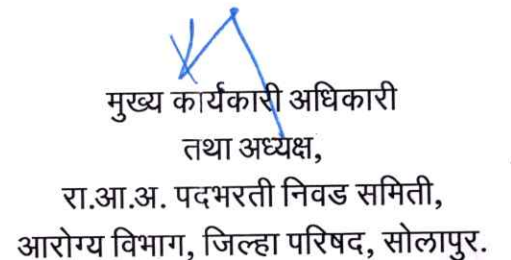 मुख्य कार्यकारी अधिकारी
तथा अध्यक्ष,
रा.आ.अ. पदभरती निवड समिती,
आरोग्य विभाग, जिल्हा परिषद, सोलापुर.